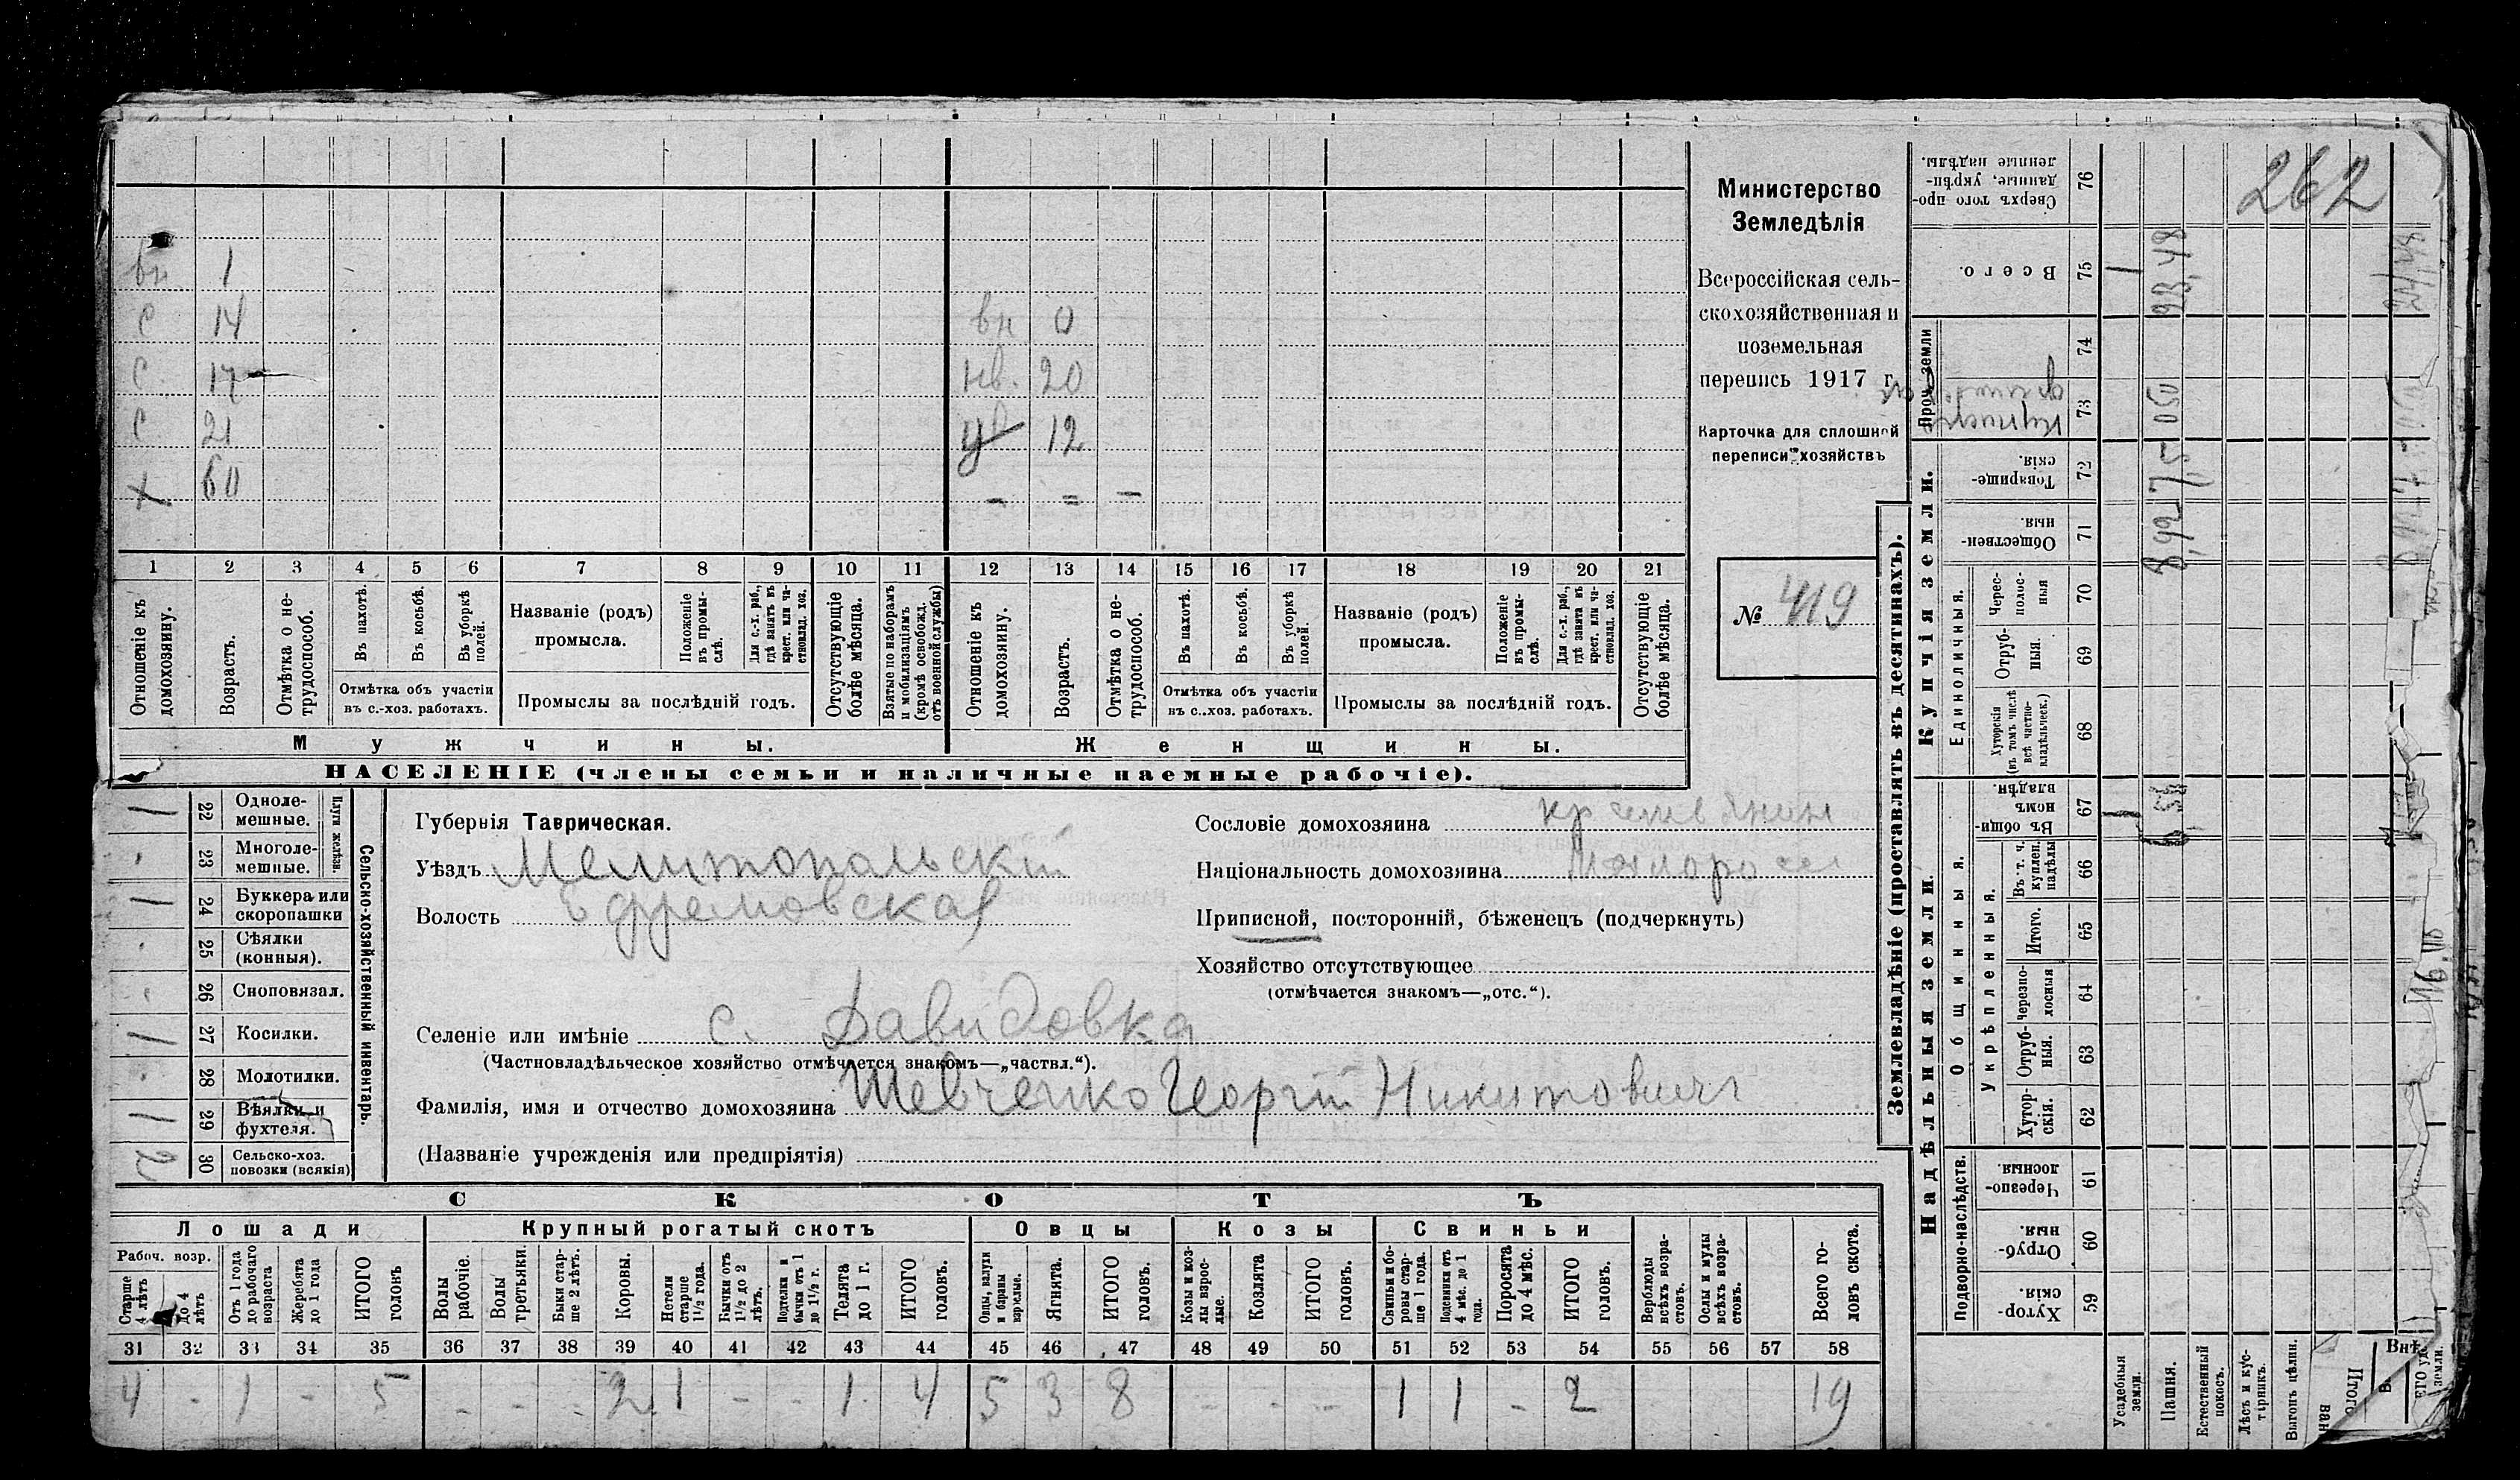 262
Министерство
Земледѣлія
Всероссійская сель-
скохозяйственная и
поземельная
перепись 1917 г.
Карточка для сплошной
переписи хозяйствъ
№ 419
вн 1
с 14 вн 0
с. 17 нв. 20
с 21 12
х 60 - = -
1 2 3 4 5 6 7 8 9 10 11 12 13 14 15 16 17 18 19 20 21
Отношеніе къ домохозяину.
Возрастъ.
Отмѣтка о не-трудоспособ.
Въ пахотѣ.
Въ косьбѣ.
Въ уборкѣ полей.
Отмѣтка объ участіи въ с.-хоз. работахъ.
Названіе (родъ) промысла.
Положеніе въ промы-слѣ.
Для с.-х. раб., гдѣ занятъ въ крест. или ча-стновлад. хоз.
Промыслы за послѣдній годъ.
Отсутствующіе болѣе мѣсяца.
Взятые по наборамъ и мобилизаціямъ (кромѣ освобожд. отъ военной службы)
Отношеніе къ домохозяину.
Возрастъ.
Отмѣтка о не-трудоспособ.
Въ пахотѣ.
Въ косьбѣ.
Въ уборкѣ полей.
Отмѣтка объ участіи въ с..хоз. работахъ.
Названіе (родъ) промысла.
Положеніе въ промы-слѣ.
Для с.-х. раб., гдѣ занята въ крест. или ча-стновлад. хоз.
Промыслы за послѣдній годъ.
Отсутствующіе болѣе мѣсяца.
Мужчины. Женщины.
НАСЕЛЕНІЕ (члены семьи и наличные наемные рабочіе).
Сельско-хозяйственный инвентарь.
Плуги желѣзн.
1 22 Одноле-мешные.
23 Многоле-мешные.
1 24 Буккера или скоропашки
25 Сѣялки (конныя).
26 Сноповязал.
1 27 Косилки.
28 Молотилки.
1 29 Вѣялки и фухтеля.
2 30 Сельско-хоз. повозки (всякія)
Губернія Таврическая.
Уѣздъ Мелитопольскій
Волость Ефремовская
Сословіе домохозяина крестьянин
Національность домохозяина Малоросс
Приписной, посторонній, бѣженецъ (подчеркнуть)
Хозяйство отсутствующее
(отмѣчается знакомъ—„отс.“).
Селеніе или имѣніе с. Давидовка
(Частновладѣльческое хозяйство отмѣчается знакомъ—„частвл.“).
Фамилія, имя и отчество домохозяина Шевченко Георгій Никитович
(Названіе учрежденія или предпріятія)
СКОТЪ
Лошади Крупный рогатый скотъ Овцы Козы Свиньи
Рабоч. возр.
Старше 4 лѣтъ
до 4 лѣтъ
Отъ 1 года до рабочаго возраста
Жеребята до 1 года
ИТОГО головъ
Волы рабочіе.
Волы третьяки.
Быки стар-ше 2 лѣтъ.
Коровы.
Нетели старше 1½ года.
Бычки отъ 1½ до 2 лѣтъ.
Подтелки и бычки отъ 1 до 1½ г.
Телята до 1 г.
ИТОГО головъ.
Овцы, валухи и бараны взрослые.
Ягнята.
ИТОГО головъ.
Козы и коз-лы взрос-лые.
Козлята
ИТОГО головъ.
Свиньи и бо-ровы стар-ше 1 года.
Подсвинки отъ 4 мѣс. до 1 года.
Поросята до 4 мѣс.
ИТОГО головъ.
Верблюды всѣхъ возра-стовъ.
Ослы и мулы всѣхъ возра-стовъ.
Всего го-ловъ скота.
31 32 33 34 35 36 37 38 39 40 41 42 43 44 45 46 47 48 49 50 51 52 53 54 55 56 57 58
4 - 1 - 5 - - - 2 1 - - 1 4 5 3 8 - - - 1 1 - 2 19
Землевладѣніе (проставлять въ десятинахъ).
Надѣльныя земли. Купчія земли. Проч. земли
Подворно-наслѣдств. Общинныя. Укрѣпленныя. Единоличныя.
Хутор-скія. 59
Отруб-ныя. 60
Черезпо-лосныя. 61
Хутор-скія. 62
Отруб-ныя. 63
Черезпо-лосныя 64
Итого. 65
Въ т. ч. куплен. надѣлы 66
Въ общи-номъ владѣн. 67
Хуторскія (въ томъ числѣ всѣ частно-владѣльческ.) 68
Отруб-ныя. 69
Черес-полос-ныя 70
Обществен-ныя. 71
Товарище-скія. 72
73
74
Всего. 75
Сверхъ того про-данные, укрѣп-ленные надѣлы. 76
Усадебныя земли.
Пашня.
Естественный покосъ.
Лѣсъ и кус-тарникъ.
Выгонъ цѣлин.
Итого